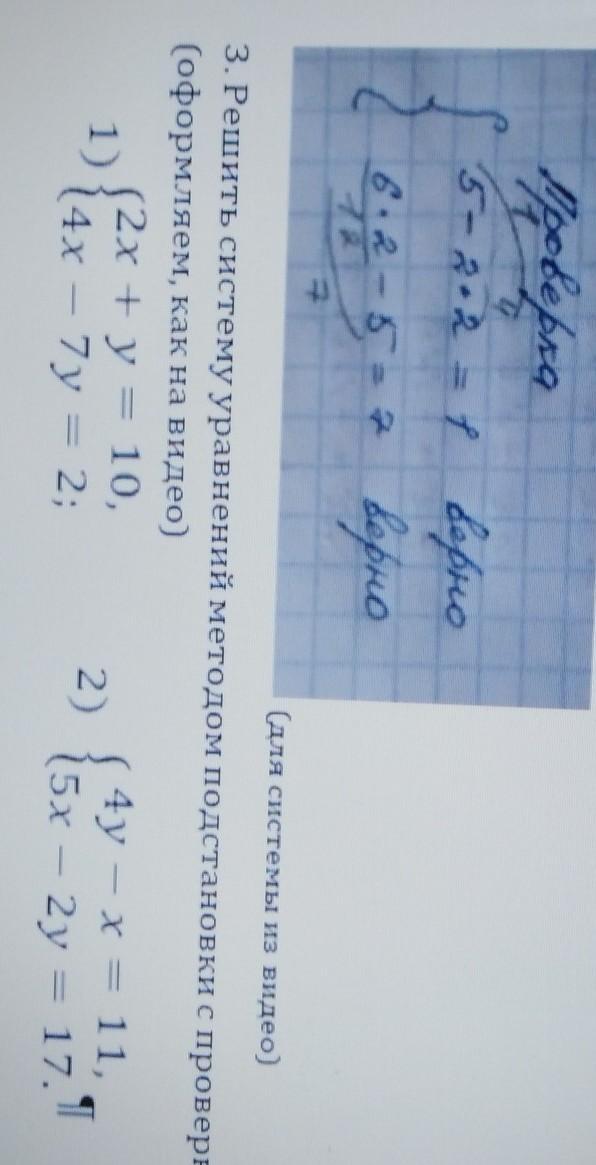 Проверка
1 4
5 - 2 · 2 = 1 верно
6 · 2 - 5 = 7 верно
12
7
(для системы из видео)
3. Решить систему уравнений методом подстановки с провер
(оформляем, как на видео)
1) {2x + y = 10,
4x − 7y = 2;
2) {4y − x = 11,
5x − 2y = 17.¶